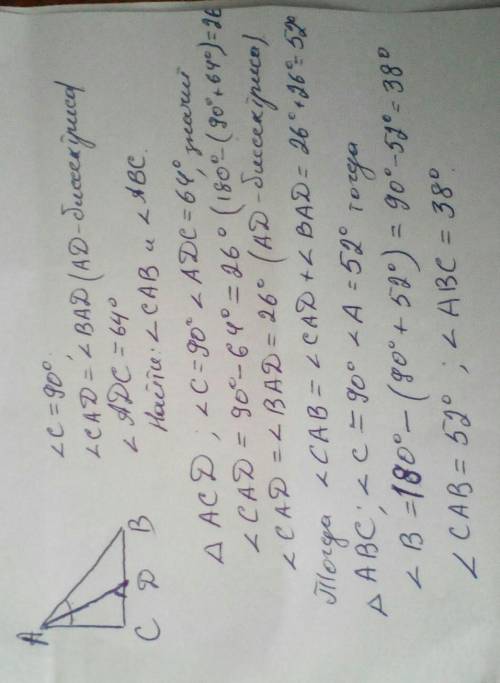 A
C D B
∠C=90°
∠CAD=∠BAD (AD-биссектриса)
∠ADC=64°
Найти: ∠CAB и ∠ABC.
△ ACD; ∠C=90° ∠ADC=64°, значит
∠CAD=90°-64°=26° (180°-(90°+64°)=26
∠CAD=∠BAD=26° (AD-биссектриса)
Тогда ∠CAB=∠CAD+∠BAD=26°+26°=52°
△ ABC; ∠C=90° ∠A=52° тогда
∠B=180°-(90°+52°)=90°-52°=38°
∠CAB=52°; ∠ABC=38°